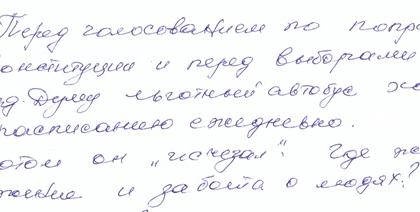 Перед голосованием по попра
онституции и перед выборами
уд. Думу льготный автобус хо
расписанию ежедневно.
отом он „исчезал“. Где же
ение и забота о людях?